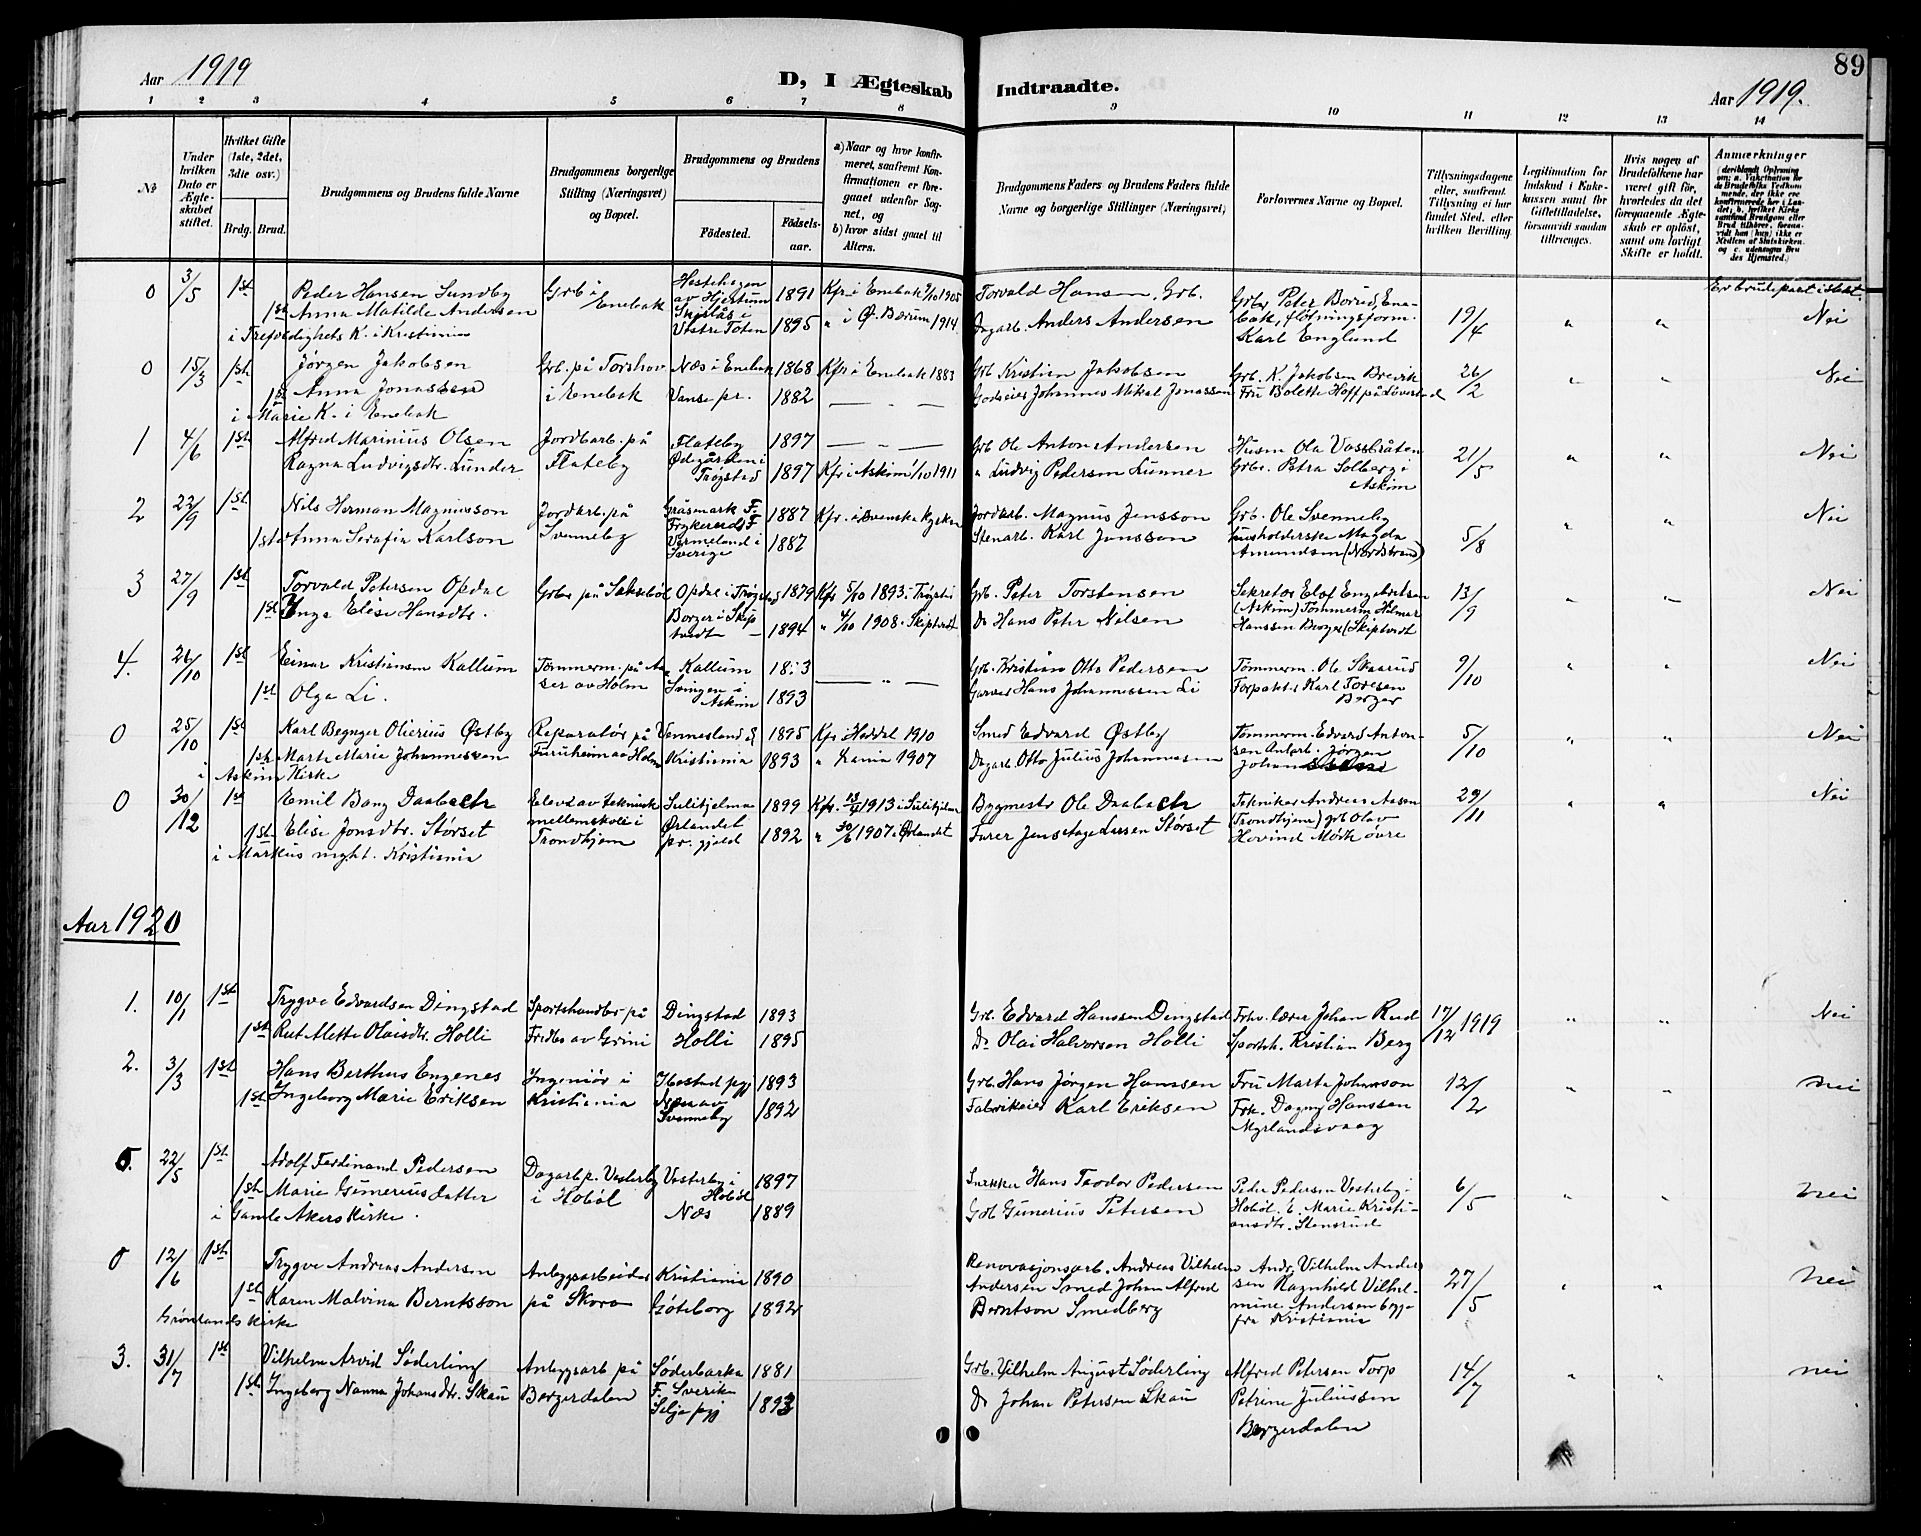 89
Aar 1919
D, I Ægteskab
Indtraadte.
Aar 1919.
1 2 3 4 5 6 7 8 9 10 11 12 13 14
No
Under hvilken Dato er Ægteskabet stiftet.
Hvilket Gifte (1ste, 2det, 3die osv.)
Brdg. Brud.
Brudgommens og Brudens fulde Navne
Brudgommens borgerlige Stilling (Næringsvei) og Bopæl.
Brudgommens og Brudens
Fødested.
Fødselsaar.
a) Naar og hvor konfirmeret, saafremt Konfirmationen er foregaaet udenfor Sognet, og
b) hvor sidst gaaet til Alters.
Brudgommens Faders og Brudens Faders fulde Navne og borgerlige Stillinger (Næringsvei)
Forlovernes Navne og Bopæl.
Tillysningsdagene eller, saafremt Tillysning ei har fundet Sted, efter hvilken Bevilling
Legitimation for Indskud i Enkekassen samt for Giftetilladelse, forsaavidt saadan tiltrænges.
Hvis nogen af Brudefolkene har været gift før, hvorledes da det foregaaende Ægteskab er opløst, samt om lovligt Skifte er holdt.
Anmærkninger
Er brudepart i slekt.
0 3/5 1st Peder Hansen Sundby Grb i Enebak Hestehagen av Hjestum 1891 Kfr i Enebak 2/10 1905 Torvald Hansen, Grb. Grbr Peter Borud, Enebak, fløtningsform. Karl Englund 19/4 " " Nei
1st Anna Matilde Andersen Vestre Toten 1895 " i Ø. Bærum 1914 Dagarb. Anders Andersen
i Trefoldighets K. i Kristiania
0 15/3 1st Jørgen Jakobsen Grb. på Torshov i Enebak Næs i Enebak 1868 Kfr i Enebak 1883 Grb Kristien Jakobsen Grb. K Jakobsen Brevik 26/2 " " Nei
1st Anna Jonassen Vanse pr. 1882 — " — Godseier Johannes Mikal Jonassen Fru Bolette Hoff på Løvestad
i Marie K. i Enebak
1 4/6 1st Alfred Marinius Olsen Jordbarb. på Flateby Flateby 1897 — " — Grb Ole Anton Andersen Husm Ola Vasshråten 21/5 " " Nei
Ragna Ludvigsdtr. Lunder Ødegården i Trøgstad 1897 Kfr i Askim 1/10 1911 " Ludvig Pedersen Lunner Grbr. Petra Solberg i Askim
2 22/9 1st Nils Herman Magnusson Jordarb. på Svenneby Gräsmark F. 1887 Kfr. i Svenska kyrkan Jordarb. Magnus Jonsson Grb. Ole Svenneby 5/8 " " Nei
1st Anna Serafia Karlson Frykerud F Vermeland i Sverige 1887 Stenarb. Karl Jonsson husholderske Magda Amundsen (Nordstrand)
3 27/9 1st Torvald Petersen Opdal Grbr på Saksebøl Opdal i Trøgstad 1879 Kfr 5/10 1893 i Trøgst. Grb. Peter Torstensen Sekretær Elof Engebretsen (Askim) Tømmerm Hilmar 13/9 " " Nei
1st Inga Elise Hansdtr. Borger i Skiptvedt 1894 " 4/10 1908 i Skiptvedt Do Hans Peter Nilsen Hanssen Borger (Skiptvedt
4. 26/10 1st Einar Kristiansen Kallum Tømmerm. på Aaser av Holm Kallum — " — Grb. Kristian Otto Pedersen Tømmerm. Ole Skaarud 9/10 " " Nei
1st Olga Li. Svingen i Askim 1893 Garver Hans Johannessen Li Forpakter Karl Toresen Berger
0 25/10 1st Karl Begnger Olierius Østby Reparatør på Furuheim av Holm Vennesland 1895 Kfr Heddal 1910 Smed Edvard Østby Tømmerm. Edvard Antonsen 5/10 " " Nei
1st Marte Marie Johannessen Kristiania 1893 " Xania 1907 Dagarb. Otto Julius Johannessen Jørgen
i Askim Kirke
0 30/12 1st Emil Bang Daabach Elev av teknisk mellemskole i Trondhjem Sulitjelma 1899 Kfr. 1913 i Sulitjelma Bygmestr Ole Daabach Tekniker Andreas Aasen (Trondhjem) grb Olav 29/11 " " Nei
1st Elise Jonsdtr. Størset Ørlandet pr. gjeld 1892 " 30/6 1907 i Ørlandet Furer Jens Lage Larsen Størset Hovind Mørk øvre
i Markus mght. Kristiania
Aar 1920
1. 10/1 1st Trygve Edvardsen Dingstad Sportshandler på Fredbo av Grini Dingstad 1893 Grb. Edvard Hanssen Dingstad Fhv. lærer Johan Rud 17/12 1919 " " Nei
1st Rut Mette Olaisdtr. Holli Holli 1895 Do Olai Halvorsen Holli Sportsh. Kristian Berg
2. 3/3 1st Hans Berthus Engenes Ingeniør i Kristiania Ibestad pgj 1893 Grb. Hans Jørgen Hanssen Fru Marta Johanson 12/2 " " nei
1st Ingeborg Marie Eriksen Næs av Svenneby 1892 Fabrikeier Karl Eriksen Frk. Dagny Hanssen Myrlandsvaag
0. 22/5 1st Adolf Ferdinand Pedersen Dagarb p. Vesterby i Hobøl Vesterby i Hobøl 1897 Snekker Hans Teodor Pedersen Peder Pedersen Vesterby i 6/5 " " nei
1st Marie Gunerius datter Næs 1889 Grb Gunerius Petersen Hobøl. E. Marie Kristiansdtr. Stensrud
i Gamle Akers Kirke.
0 12/6 1st Trygve Andreas Andersen Anlegsarbeider på Skovo Kristiania 1890 Renovasjonsarb. Andreas Vilhelm Andersen Andr. Vilhelm Andersen 27/5 " " nei
1st Karen Malvina Berntsson Göteborg 1892 Smed Johan Alfred Berntson Smedberg Ragnhild Vilhelmine Andersen begge fra Kristiania
Grønlands kirke
3. 31/7 1st Vilhelm Arvid Söderling Anlegsarb på Bergerdalen Söderbärke F. Sverike 1881 Grb. Vilhelm August Söderling Alfred Petersen Torp 14/7 " " nei
1st Ingeborg Nanna Johansdtr. Skau Selje pgj 1893 Do Johan Petersen Skau Petrine Juliussen Bergerdalen